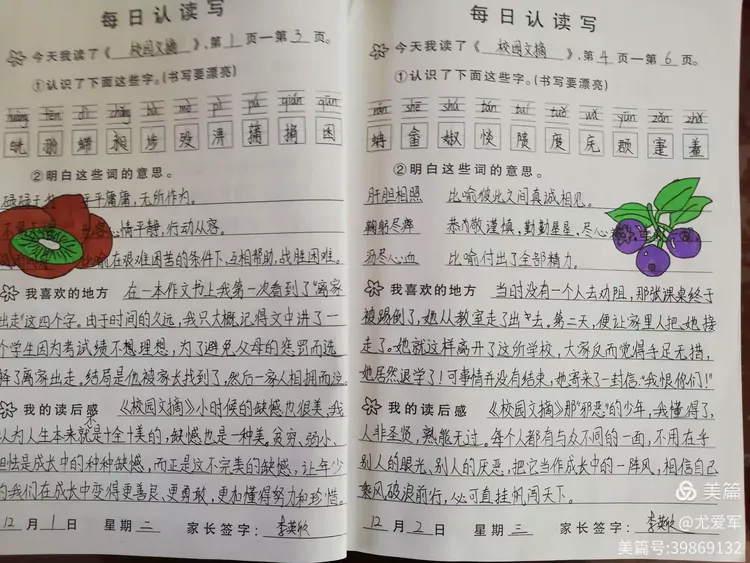 每日认读写
今天我读了《校园文摘》,第1页—第3页。
①认识了下面这些字。(书写要漂亮)
捕 捐 困
②明白这些词的意思。
平平庸庸,无所作为。
心情平静,行动从容。
比喻在艰难困苦的条件下,互相帮助,战胜困难。
我喜欢的地方 在一本作文书上我第一次看到了“离家
出走”这四个字。由于时间的久远,我只大概记得文中讲了一
个学生因为考试绩不想理想,为了避免父母的惩罚而选
择了离家出走。结局是他被家长找到了,然后一家人相拥而泣
我的读后感 《校园文摘》小时候的缺憾也很美。我
认为人生本来就是十全十美的,缺憾也是一种美。贫穷、弱小、
胆怯是成长中的种种缺憾,而正是这不完美的缺憾,让年少
的我们在成长中变得更善良、更勇敢,更加懂得努力和珍惜。
12月1日 星期二 家长签字:
每日认读写
今天我读了《校园文摘》,第4页—第6页。
①认识了下面这些字。(书写要漂亮)
rán shē shú tuí duó wù yūn zhǎ
蚺 畲 度 羞
②明白这些词的意思。
肝胆相照 比喻彼此之间真诚相见。
鞠躬尽瘁 恭敬谨慎,勤勤恳恳,尽心
沥尽心血 比喻付出了全部精力。
我喜欢的地方 当时没有一个人去劝阻,那张课桌终于
被踢倒了,她从教室走了出去。第二天,便让家里人把她接
走了。她就这样离开了这所学校,大家反而觉得手足无措,
她居然退学了!可事情并没有结束,她寄来了一封信:“我恨你们!”
我的读后感 《校园文摘》那“邪恶”的少年,我懂得了,
人非圣贤,孰能无过。每个人都有与众不同的一面,不用在乎
别人的眼光、别人的厌恶,把它当作成长中的一阵风,相信自己
乘风破浪前行,必可直挂帆闯天下。
12月2日 星期三 家长签字:
美篇
@尤爱军
美篇号:39869132